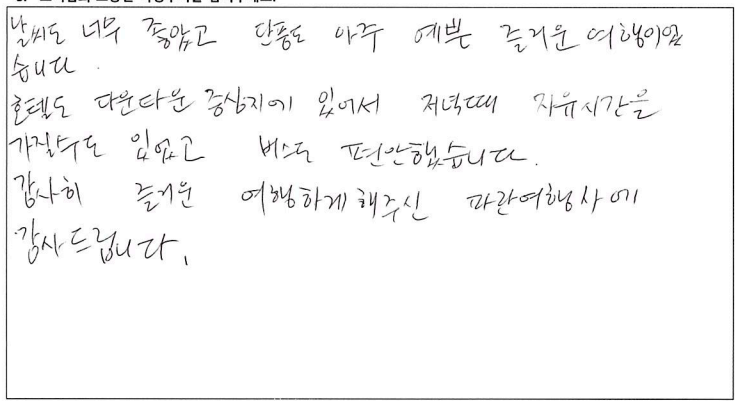 날씨도 너무 좋았고 단풍도 아주 예쁜 즐거운 여행이었
습니다.
호텔도 다운타운 중심지에 있어서 저녁때 자유시간을
가질수도 있었고 버스도 편안했습니다.
감사히 즐거운 여행하게해주신 파란여행사에
감사드립니다.